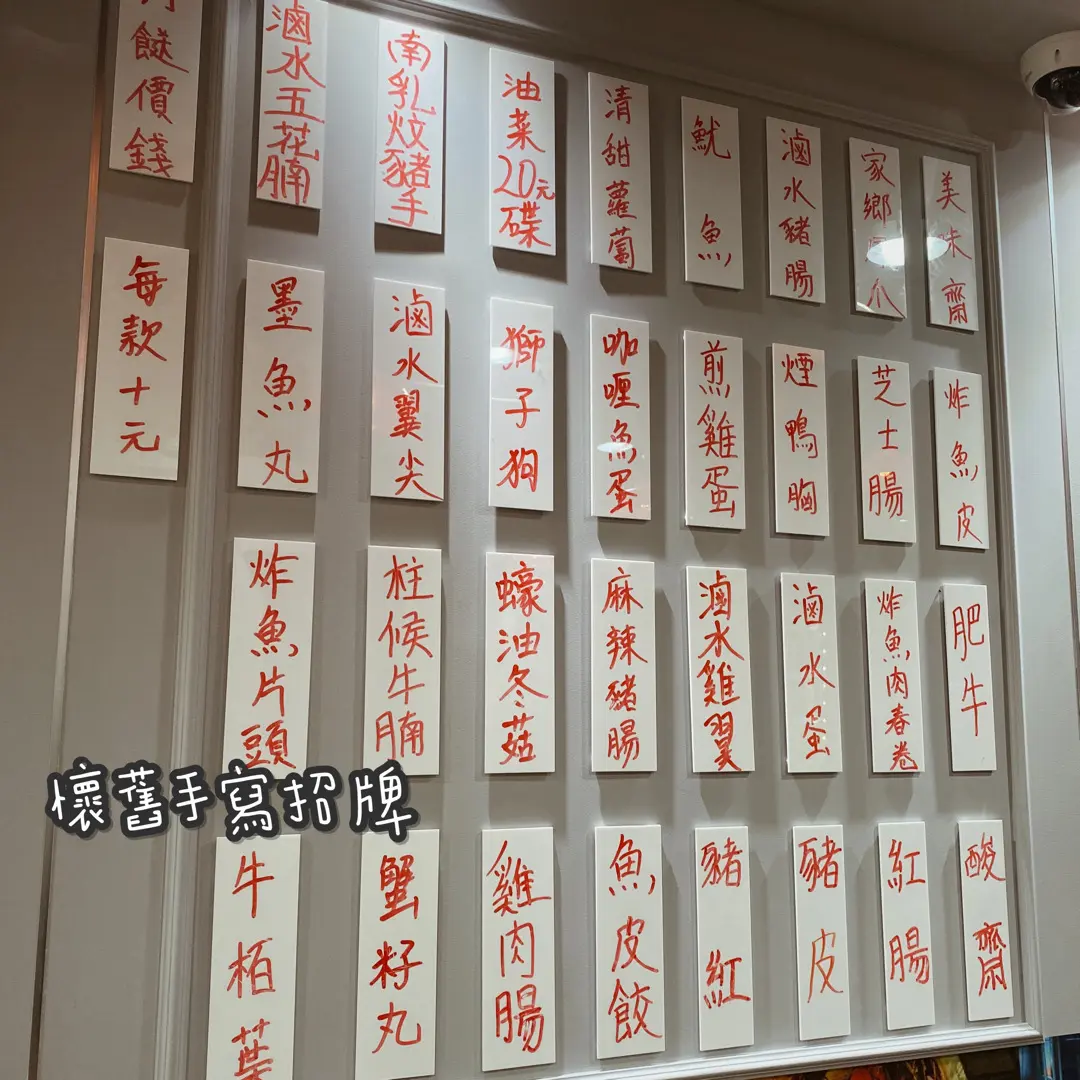 餸價錢
滷水五花腩
南乳炆豬手
油菜20元碟
清甜蘿蔔
魷魚
滷水豬腸
家鄉鳳爪
美味齋
每款十元
墨魚丸
滷水翼尖
獅子狗
咖喱魚蛋
煎雞蛋
煙鴨胸
芝士腸
炸魚皮
炸魚片頭
柱候牛腩
蠔油冬菇
麻辣豬腸
滷水雞翼
滷水蛋
炸魚肉春卷
肥牛
懷舊手寫招牌
牛栢葉
蟹籽丸
雞肉腸
魚皮餃
豬紅
豬皮
紅腸
酸齋